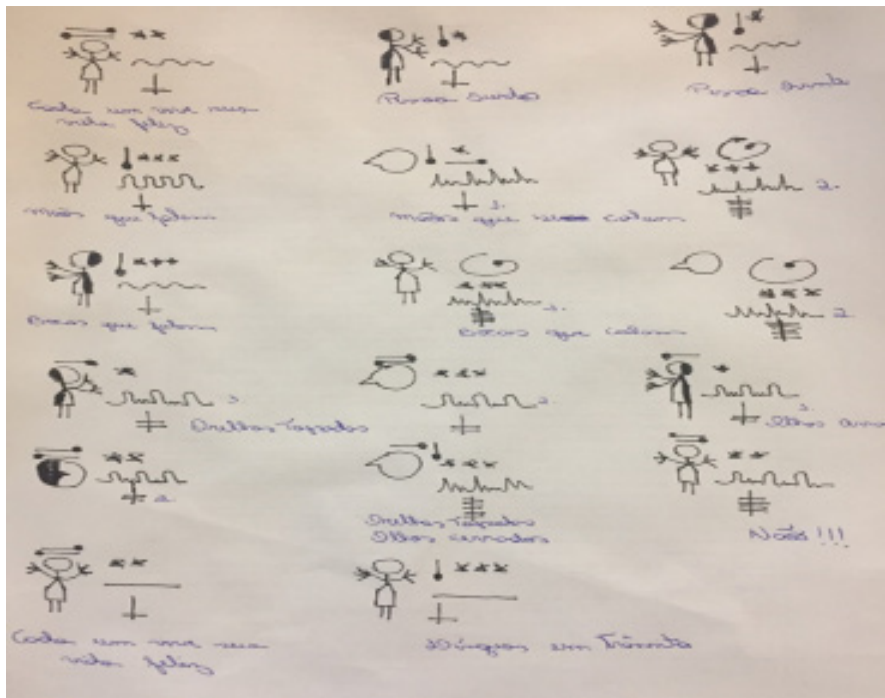 Cada um vive sua
vida feliz
Pessoa Surda
Pessoa Ouvinte
mãos que falam
1.
mãos que se calam
2.
Bocas que falam
1.
Bocas que calam
2.
1.
Orelhas Tapadas
2.
1.
Olhos
2.
Orelhas Tapadas
Olhos cerrados
Não!!!
Cada um vive sua
vida feliz
Línguas em Trânsito